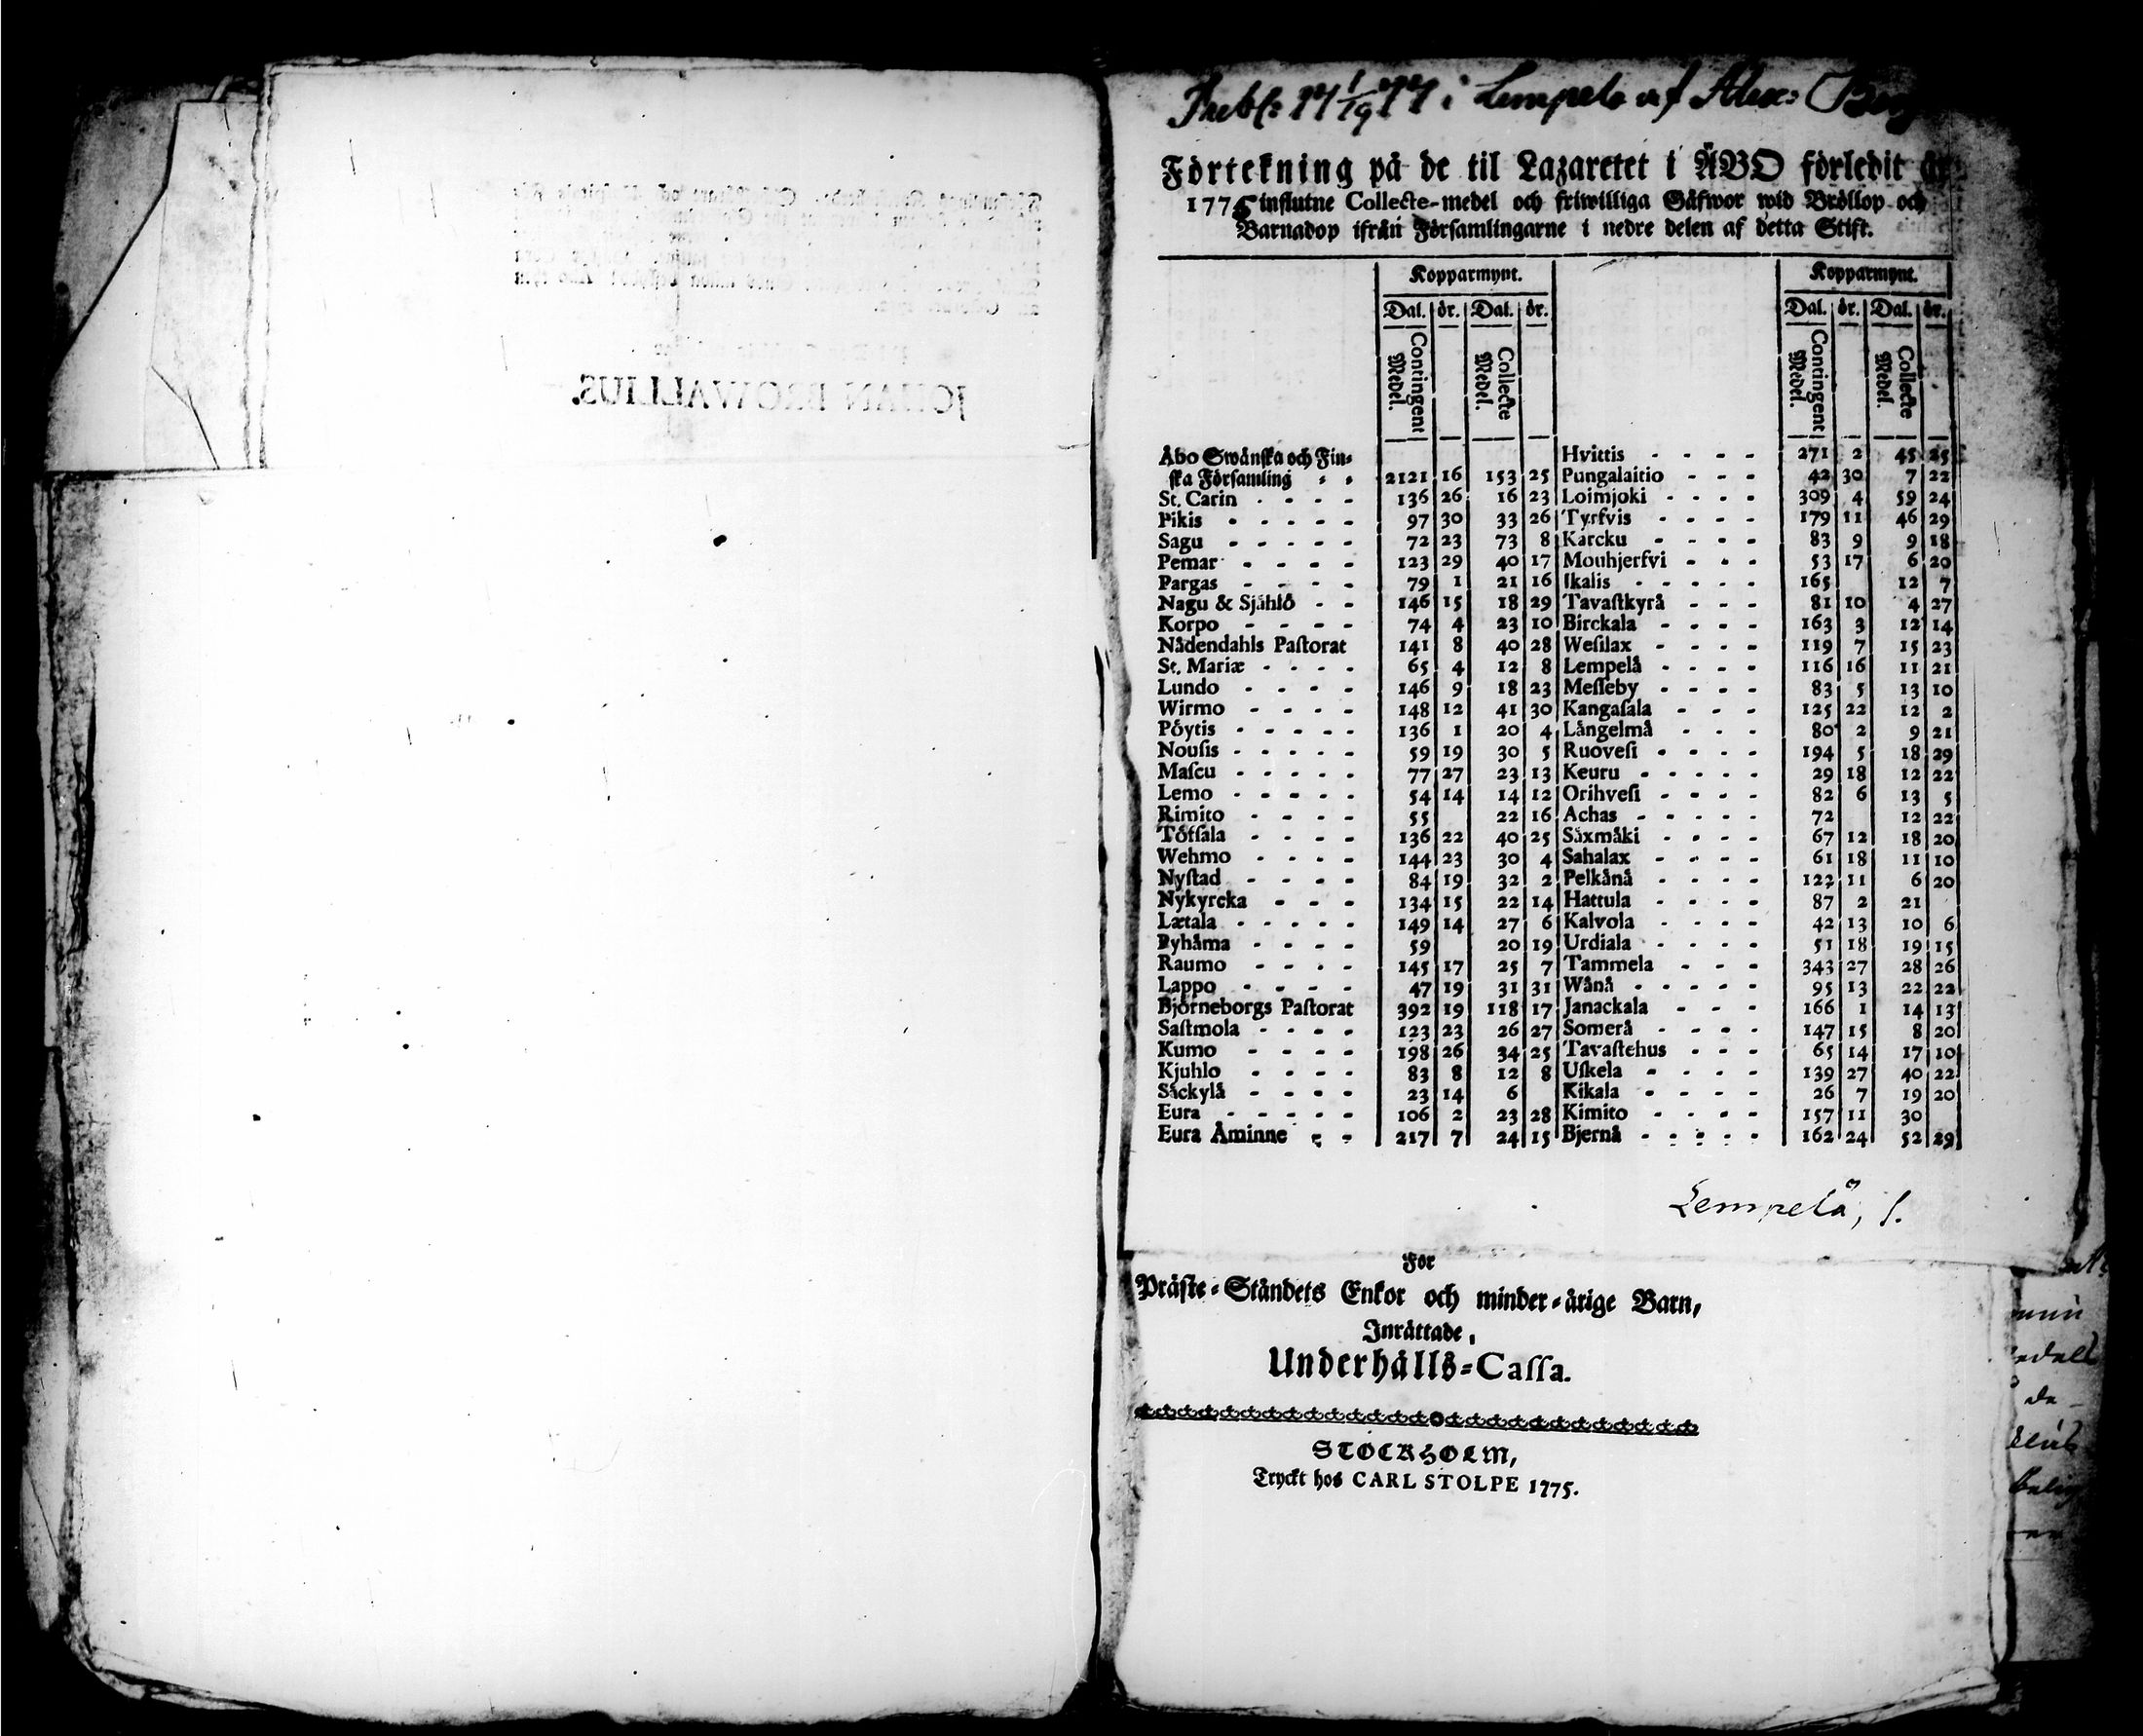 JOHAN BROWALLIUS.
Publ: 17 1/19 77 i Lempelä af Alex:
Förtekning på de til Lazaretet i ÅBO förledit år
1775 influtne Collecte-medel och friwilliga Gåfwor wid Bröllop och
Barnadop ifrån Församlingarne i nedre delen af detta Stift.
Kopparmynt. Kopparmynt.
Dal. ör. Dal. ör. Dal. ör. Dal. ör.
Contingent Medel. Collecte Medel. Contingent Medel. Collecte Medel.
Åbo Swänska och Fin- Hvittis - - - - 271 2 45 25
ska Församling - - 2121 16 153 25 Pungalaitio - - - 42 30 7 22
St. Carin - - - - 136 26 16 23 Loimjoki - - - - 309 4 59 24
Pikis - - - - - 97 30 33 26 Tyrfvis - - - - 179 11 46 29
Sagu - - - - - 72 23 73 8 Karcku - - - - 83 9 9 18
Pemar - - - - 123 29 40 17 Mouhjerfvi - - - 53 17 6 20
Pargas - - - - 79 1 21 16 Ikalis - - - - - 165 12 7
Nagu & Sjählö - - 146 15 18 29 Tavastkyrå - - - 81 10 4 27
Korpo - - - - 74 4 23 10 Birckala - - - - 163 3 12 14
Nådendahls Pastorat 141 8 40 28 Wesilax - - - - 119 7 15 23
St. Mariæ - - - - 65 4 12 8 Lempelä - - - - 116 16 11 21
Lundo - - - - 146 9 18 23 Messeby - - - - 83 5 13 10
Wirmo - - - - 148 12 41 30 Kangasala - - - 125 22 12 2
Pöytis - - - - - 136 1 20 4 Längelmä - - - 80 2 9 21
Nousis - - - - - 59 19 30 5 Ruovesi - - - - 194 5 18 29
Mascu - - - - - 77 27 23 13 Keuru - - - - - 29 18 12 22
Lemo - - - - - 54 14 14 12 Orihvesi - - - - 82 6 13 5
Rimito - - - - 55 22 16 Achas - - - - - 72 12 22
Töfsala - - - - 136 22 40 25 Säxmäki - - - - 67 12 18 20
Wehmo - - - - 144 23 30 4 Sahalax - - - - 61 18 11 10
Nystad - - - - 84 19 32 2 Pelkänä - - - - 122 11 6 20
Nykyrcka - - - 134 15 22 14 Hattula - - - - 87 2 21
Lætala - - - - - 149 14 27 6 Kalvola - - - - 42 13 10 6
Pyhäma - - - - 59 20 19 Urdiala - - - - 51 18 19 15
Raumo - - - - 145 17 25 7 Tammela - - - 343 27 28 26
Lappo - - - - - 47 19 31 31 Wånå - - - - - 95 13 22 22
Björneborgs Pastorat 392 19 118 17 Janackala - - - 166 1 14 13
Sastmola - - - - 123 23 26 27 Somerå - - - - 147 15 8 20
Kumo - - - - 198 26 34 25 Tavastehus - - - 65 14 17 10
Kjuhlo - - - - 83 8 12 8 Uskela - - - - 139 27 40 22
Säckylä - - - - 23 14 6 Kikala - - - - 26 7 19 20
Eura - - - - - 106 2 23 28 Kimito - - - - 157 11 30
Eura Åminne - - 217 7 24 15 Bjernå - - - - - 162 24 52 29
Lempelä, s.
För
Präste-Ståndets Enkor och minder-årige Barn,
Inrättade,
Underhålls-Cassa.
STOCKHOLM,
Tryckt hos CARL STOLPE 1775.